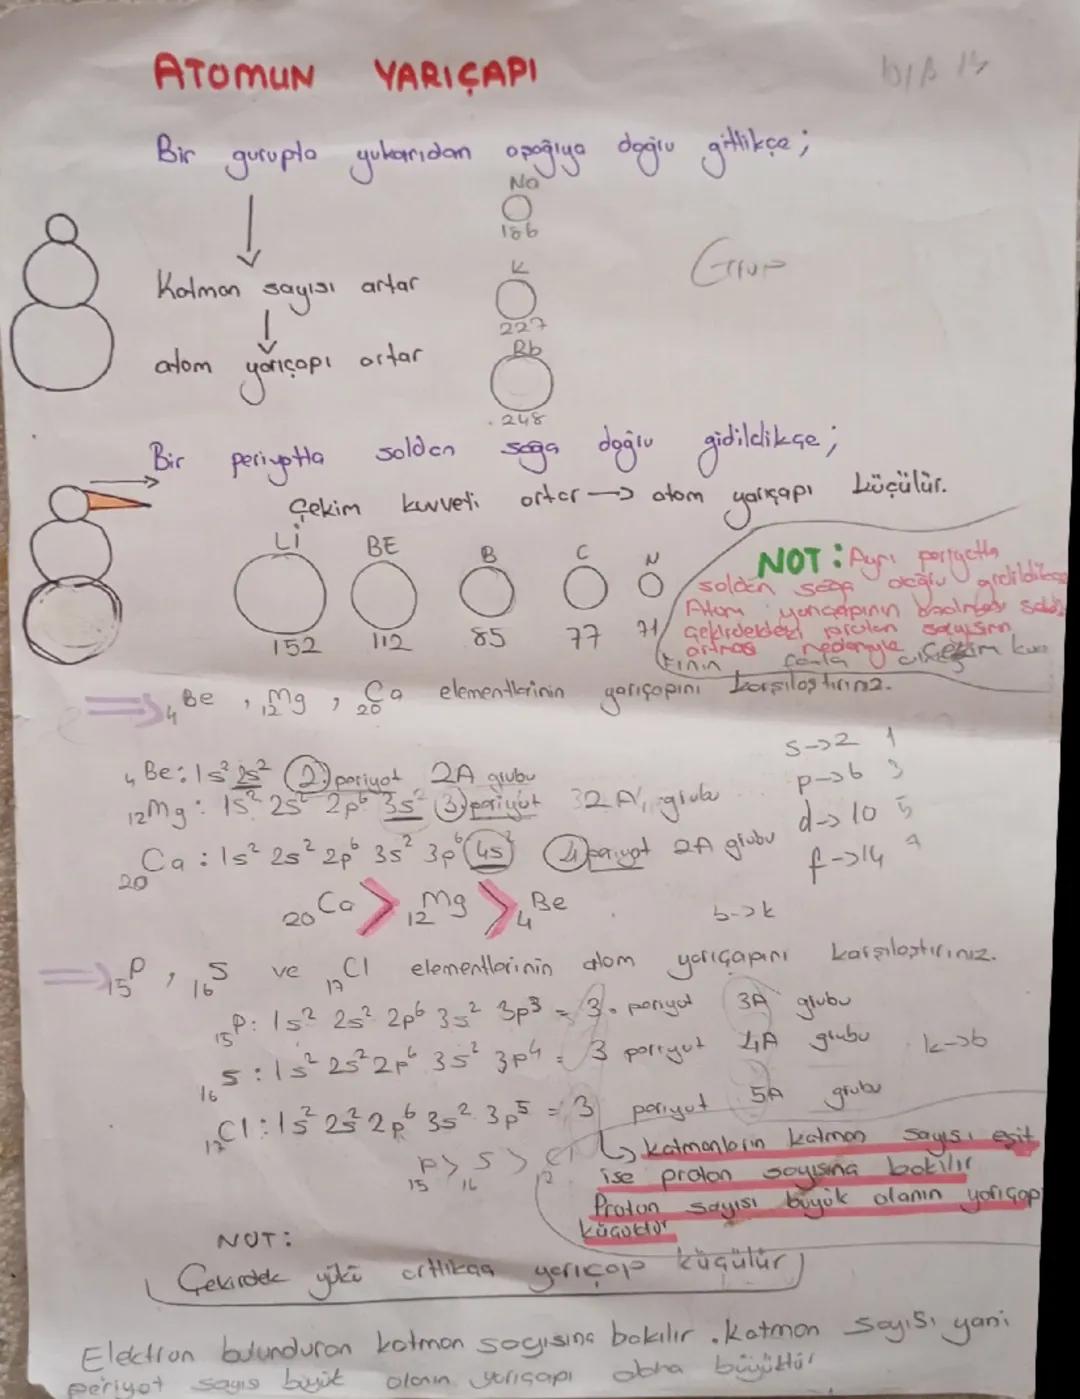 ATOMUN YARIÇAPI
Bir gurupta yukarıdan aşağıya doğru gittikçe;
Na
186
Grup
Katman sayısı artar
K
227
Rb
atom yarıçapı artar
248
Bir periyotta soldan sağa doğru gidildikçe;
Çekim kuvveti artar → atom yarıçapı küçülür.
Li BE B C N
152 112 85 77 71
NOT: Aynı periyotta
soldan sağa doğru gidildikçe
Atom yarıçapının azalması
Çekirdekteki proton sayısının
artması nedeniyle çekim
₄Be, ₁₂Mg, ₂₀Ca elementlerinin yarıçapını karşılaştırınız.
s->2 1
p->6 3
d->10 5
f->14
₄Be: 1s² 2s² 2.periyot 2A grubu
₁₂Mg: 1s² 2s² 2p⁶ 3s² 3 periyot 2A grubu
₂₀Ca: 1s² 2s² 2p⁶ 3s² 3p⁶ 4s² 4 periyot 2A grubu
₂₀Ca > ₁₂Mg > ₄Be
b->k
₁₅P, ₁₆S ve ₁₇Cl elementlerinin atom yarıçapını karşılaştırınız.
₁₅P: 1s² 2s² 2p⁶ 3s² 3p³ = 3. periyot 3A grubu
₁₆S: 1s² 2s² 2p⁶ 3s² 3p⁴ = 3 periyot 4A grubu k->b
₁₇Cl: 1s² 2s² 2p⁶ 3s² 3p⁵ = 3 periyot 5A grubu
₁₅P > ₁₆S > Cl
↳ katmanların katman sayısı eşit
ise proton sayısına bakılır
Proton sayısı büyük olanın yarıçap
küçüktür
NOT:
Çekirdek yükü arttıkça yarıçap küçülür
Elektron bulunduran katman sayısına bakılır. Katman sayısı yani
periyot sayıs büyük olanın yarıçapı daha büyüktür